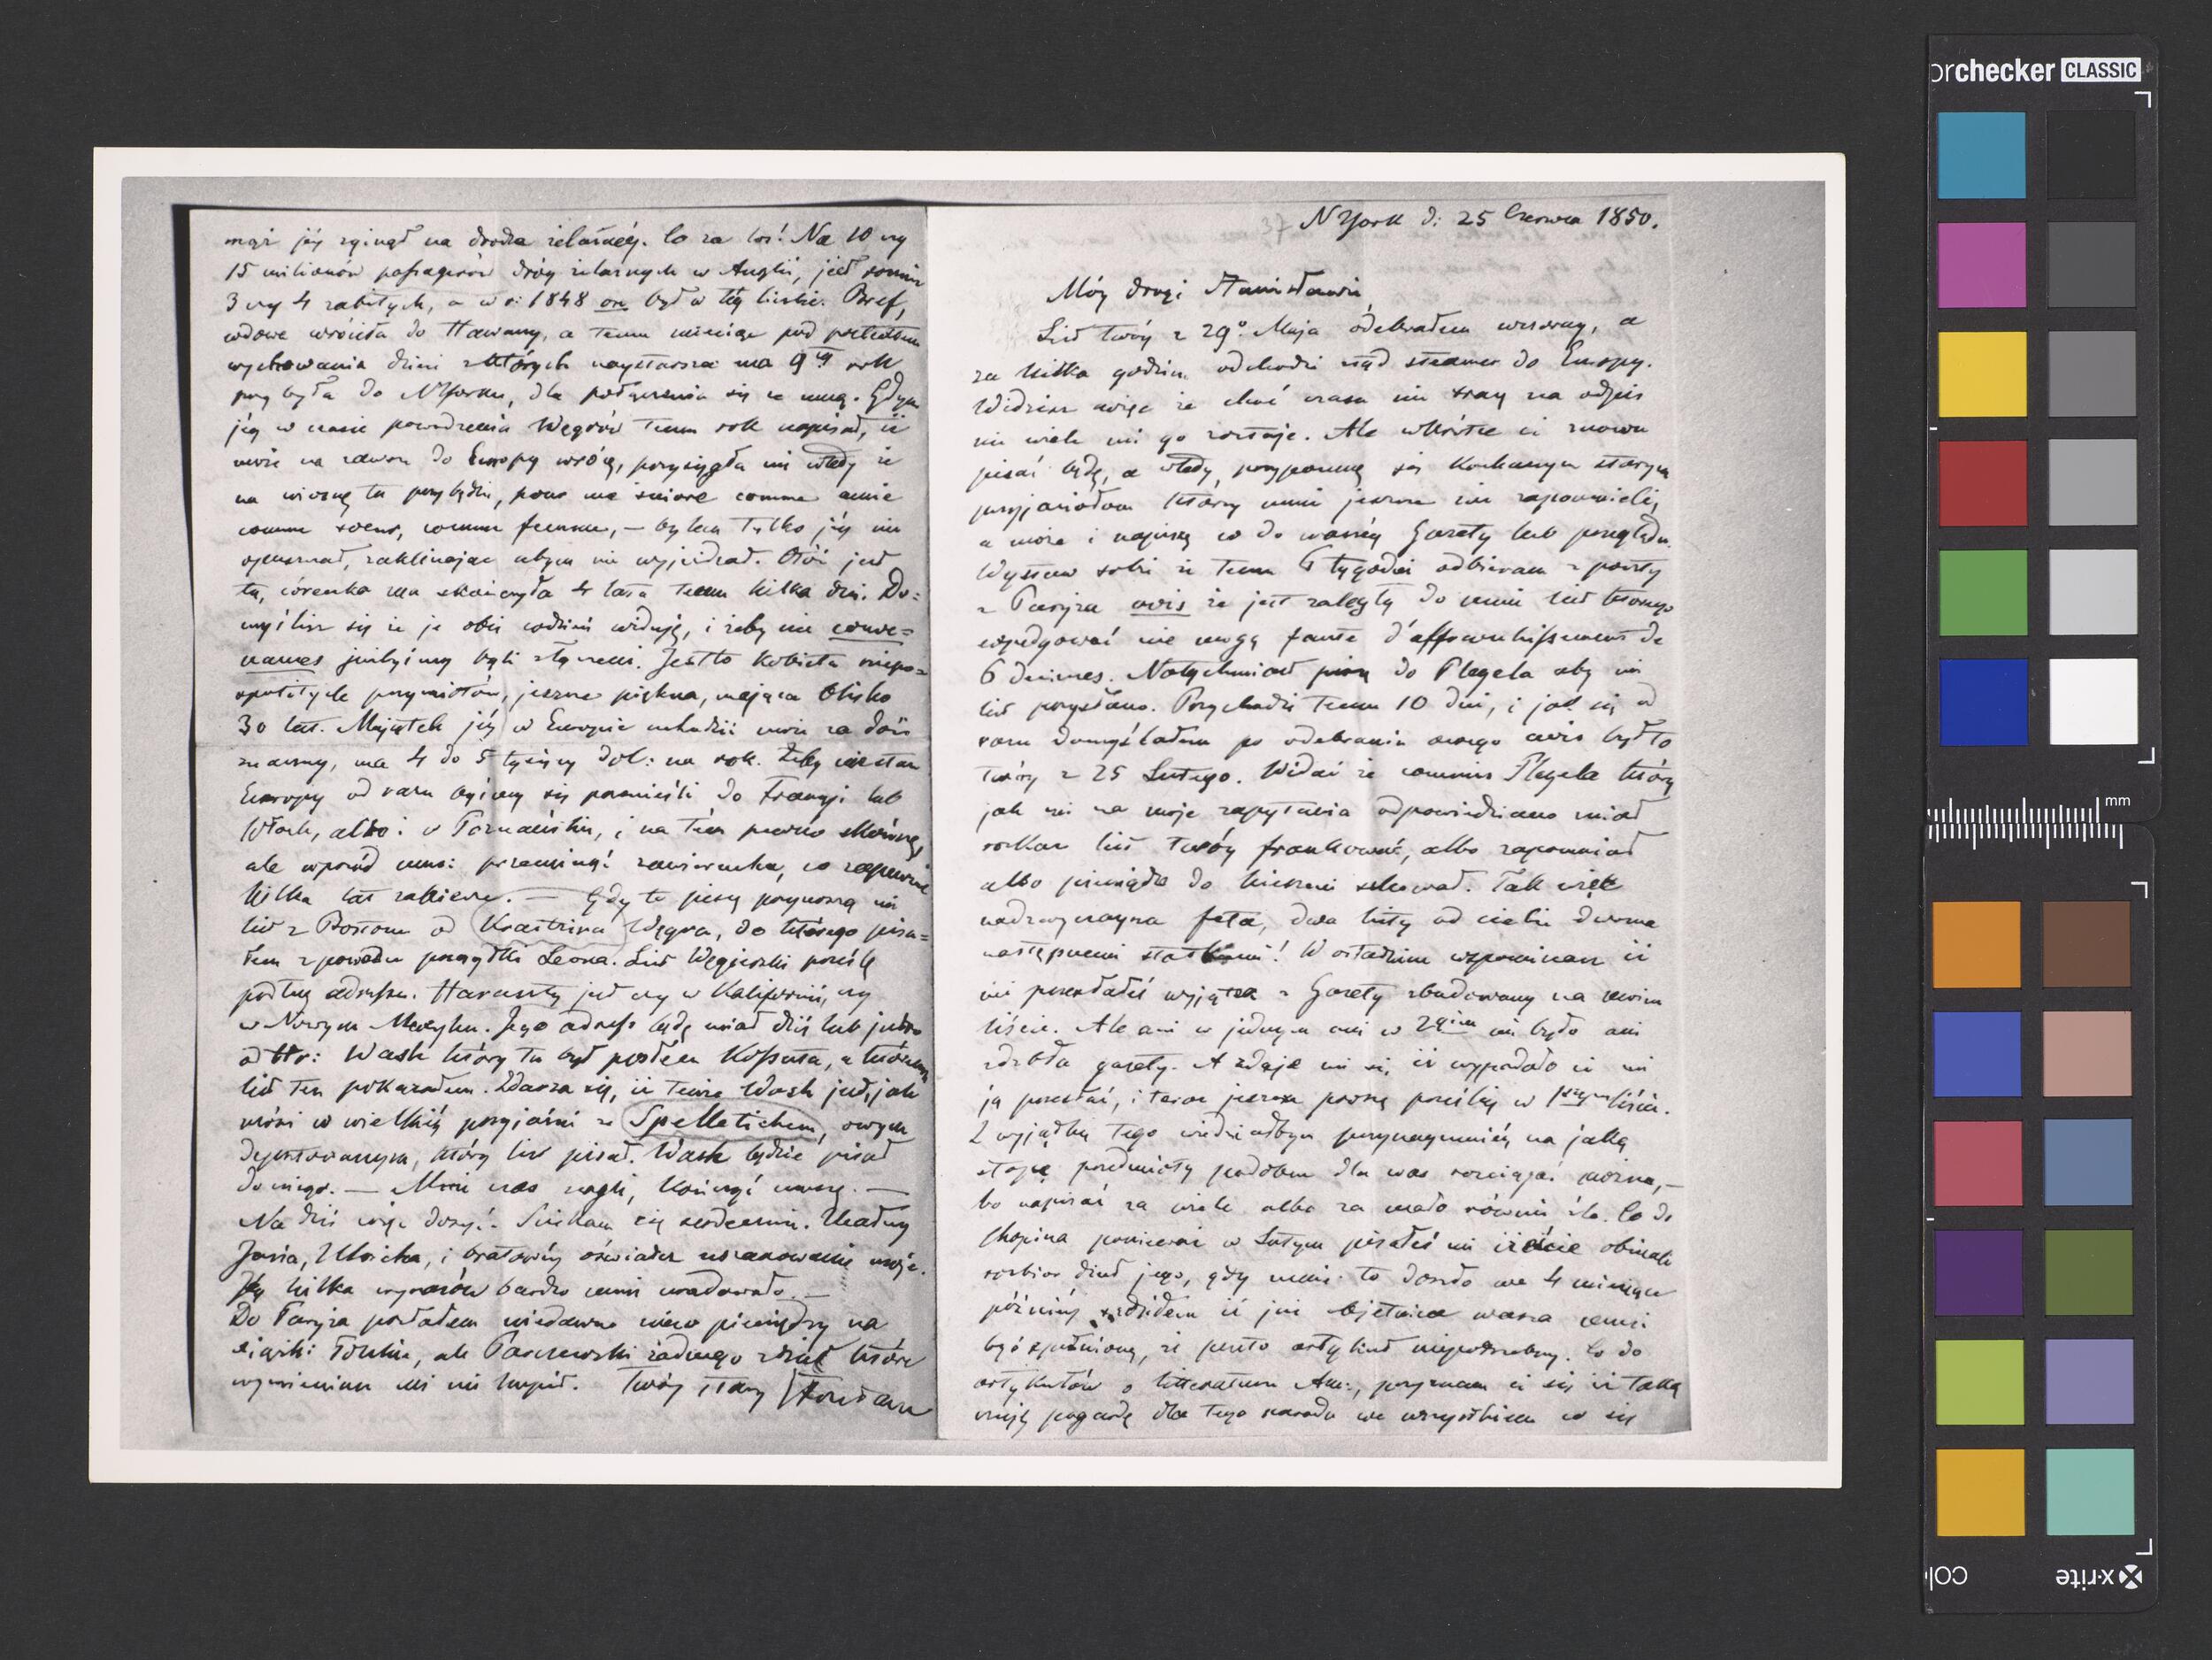 mąż jéj zginął na drodze żelaznéj. Co za los! Na 10 czy
15 milionów passażerów dróg żelaznych w Anglii, jest
3 czy 4 zabitych, a w r: 1848 on był w téj liczbie. Bref,
wdowa wróciła do Hawany, a temu miesiąc pod pretextem
wychowania dzieci z których najstarsza ma 9ty rok
przybyła do NYorku, dla połączenia się ze mną. Gdym
jéj w czasie powodzenia Węgrów temu rok napisał, iż
może na zawsze do Europy wrócę, przysięgła mi wtedy że
na wiosnę tu przybędzie, pour me suivre comme amie
comme soeur, comme femme, — bylem tylko jéj nie
opuszczał, zaklinając abym nie wyjeżdżał. Otóż jest
tu, córeczka ma skończyła 4 lata temu kilka dni. Do=
myślisz się że je obie codzień widuję, i żeby nie conve=
nances jużbyśmy byli złączeni. Jestto kobieta niepo=
spolitych przymiotów, jeszcze piękna, mająca blisko
30 lat. Majątek jéj w Europie uchodzić może za dość
znaczny, ma 4 do 5 tysięcy dol: na rok. Żeby nie stan
Europy od razu byśmy się przenieśli do Francji lub
Włoch, albo i w Poznańskie, i na tém pewno skończę,
ale wprzód musi przeminąć zawierucha, co zapewne
kilka lat zabierze. — Gdy to piszę przynoszą mi
list z Bostonu od Węgra, do którego pisa=
łem z powodu przesyłki Leona. List Węgierski poszlę
podług adressu. Haraszty jest czy w Kalifornii, czy
w Nowym Mexyku. Jego adress będę miał dziś lub jutro
od Wash który tu był posłem Kossuta, a któremu
list ten pokazałem. Zdarza się, iż tenże Wash jest, jak
mówi w wielkiéj przyjaźni ze Spelletichem, owym
deputowanym, który list pisał. Wash będzie pisał
do niego. — Mnie czas nagli, kończyć muszę. —
Na dziś więc dosyć. Ściskam cię serdecznie. Ucałuj
Józia, Ulricha, i bratowéj oświadcz uszanowanie moje.
Jéj kilka wyrazów bardzo mnie uradowało. —
Do Paryża posłałem niedawno nieco pieniędzy na
książki Tobie, ale żadnego dzieła które
wymieniasz mi nie kupił. Twój stary Jordan
37 NYork d: 25 Czerwca 1850.
Mój drogi Stanisławie,
List twój z 29o Maja odebrałem wczoray, a
za kilka godzin odchodzi ztąd steamer do Europy.
Widzisz więc że choć czasu nie tracę na odpis
nie wiele mi go zostaje. Ale wkrótce ci znowu
pisać będę, a wtedy przypomnę się kochanym starym
przyjaciołom którzy mnie jeszcze nie zapomnieli,
a może i napiszę co do waszéj Gazety lub przeglądu.
Wystaw sobie że temu 6 tygodni odbieram z poczty
z Paryża avis że jest zaległy do mnie list którego
expedyować nie mogą faute d'affranchissement de
6 decimes. Natychmiast piszę do Plegela aby mi
list przysłano. Przychodzi temu 10 dni, i jak się od
razu domyślałem po odebraniu owego avis był to
twój z 25 Lutego. Widać że commis Plegela który
jak mi na moje zapytania odpowiedziano miał
rozkaz list twóy frankować, albo zapomniał
albo pieniądze do kieszeni schował. Tak więc
nadzwyczayna feta, dwa listy od ciebie dwoma
następnemi statkami! W ostatnim wspominasz iż
mi posłałeś wyjątek z Gazety zbudowany na moim
liście. Ale ani w jednym ani w 2gim nie było ani
zdzbła gazety. A zdaje mi się iż wypadało iż mi
ją posłać, i teraz jeszcze proszę poszlij w 1szym liście.
Z wyjątku tego wiedziałbym przynaymniéj na jaką
stopę przedmioty podobne dla was rozciągać można, —
bo napisać za wiele albo za mało równie źle. Co do
Chopina ponieważ w Lutym pisałeś mi iżeście obiecali
rozbiór dzieł jego, gdy mnie to doszło we 4 miesiące
później sądziłem iż już obietnica wasza musi
być spełnioną, że przeto artykuł niepotrzebny. Co do
artykułów o litteraturze Am:, przyznam ci się iż taką
mam pogardę dla tego narodu we wszystkiem co się
orchecker CLASSIC
mm
x-rite
colo